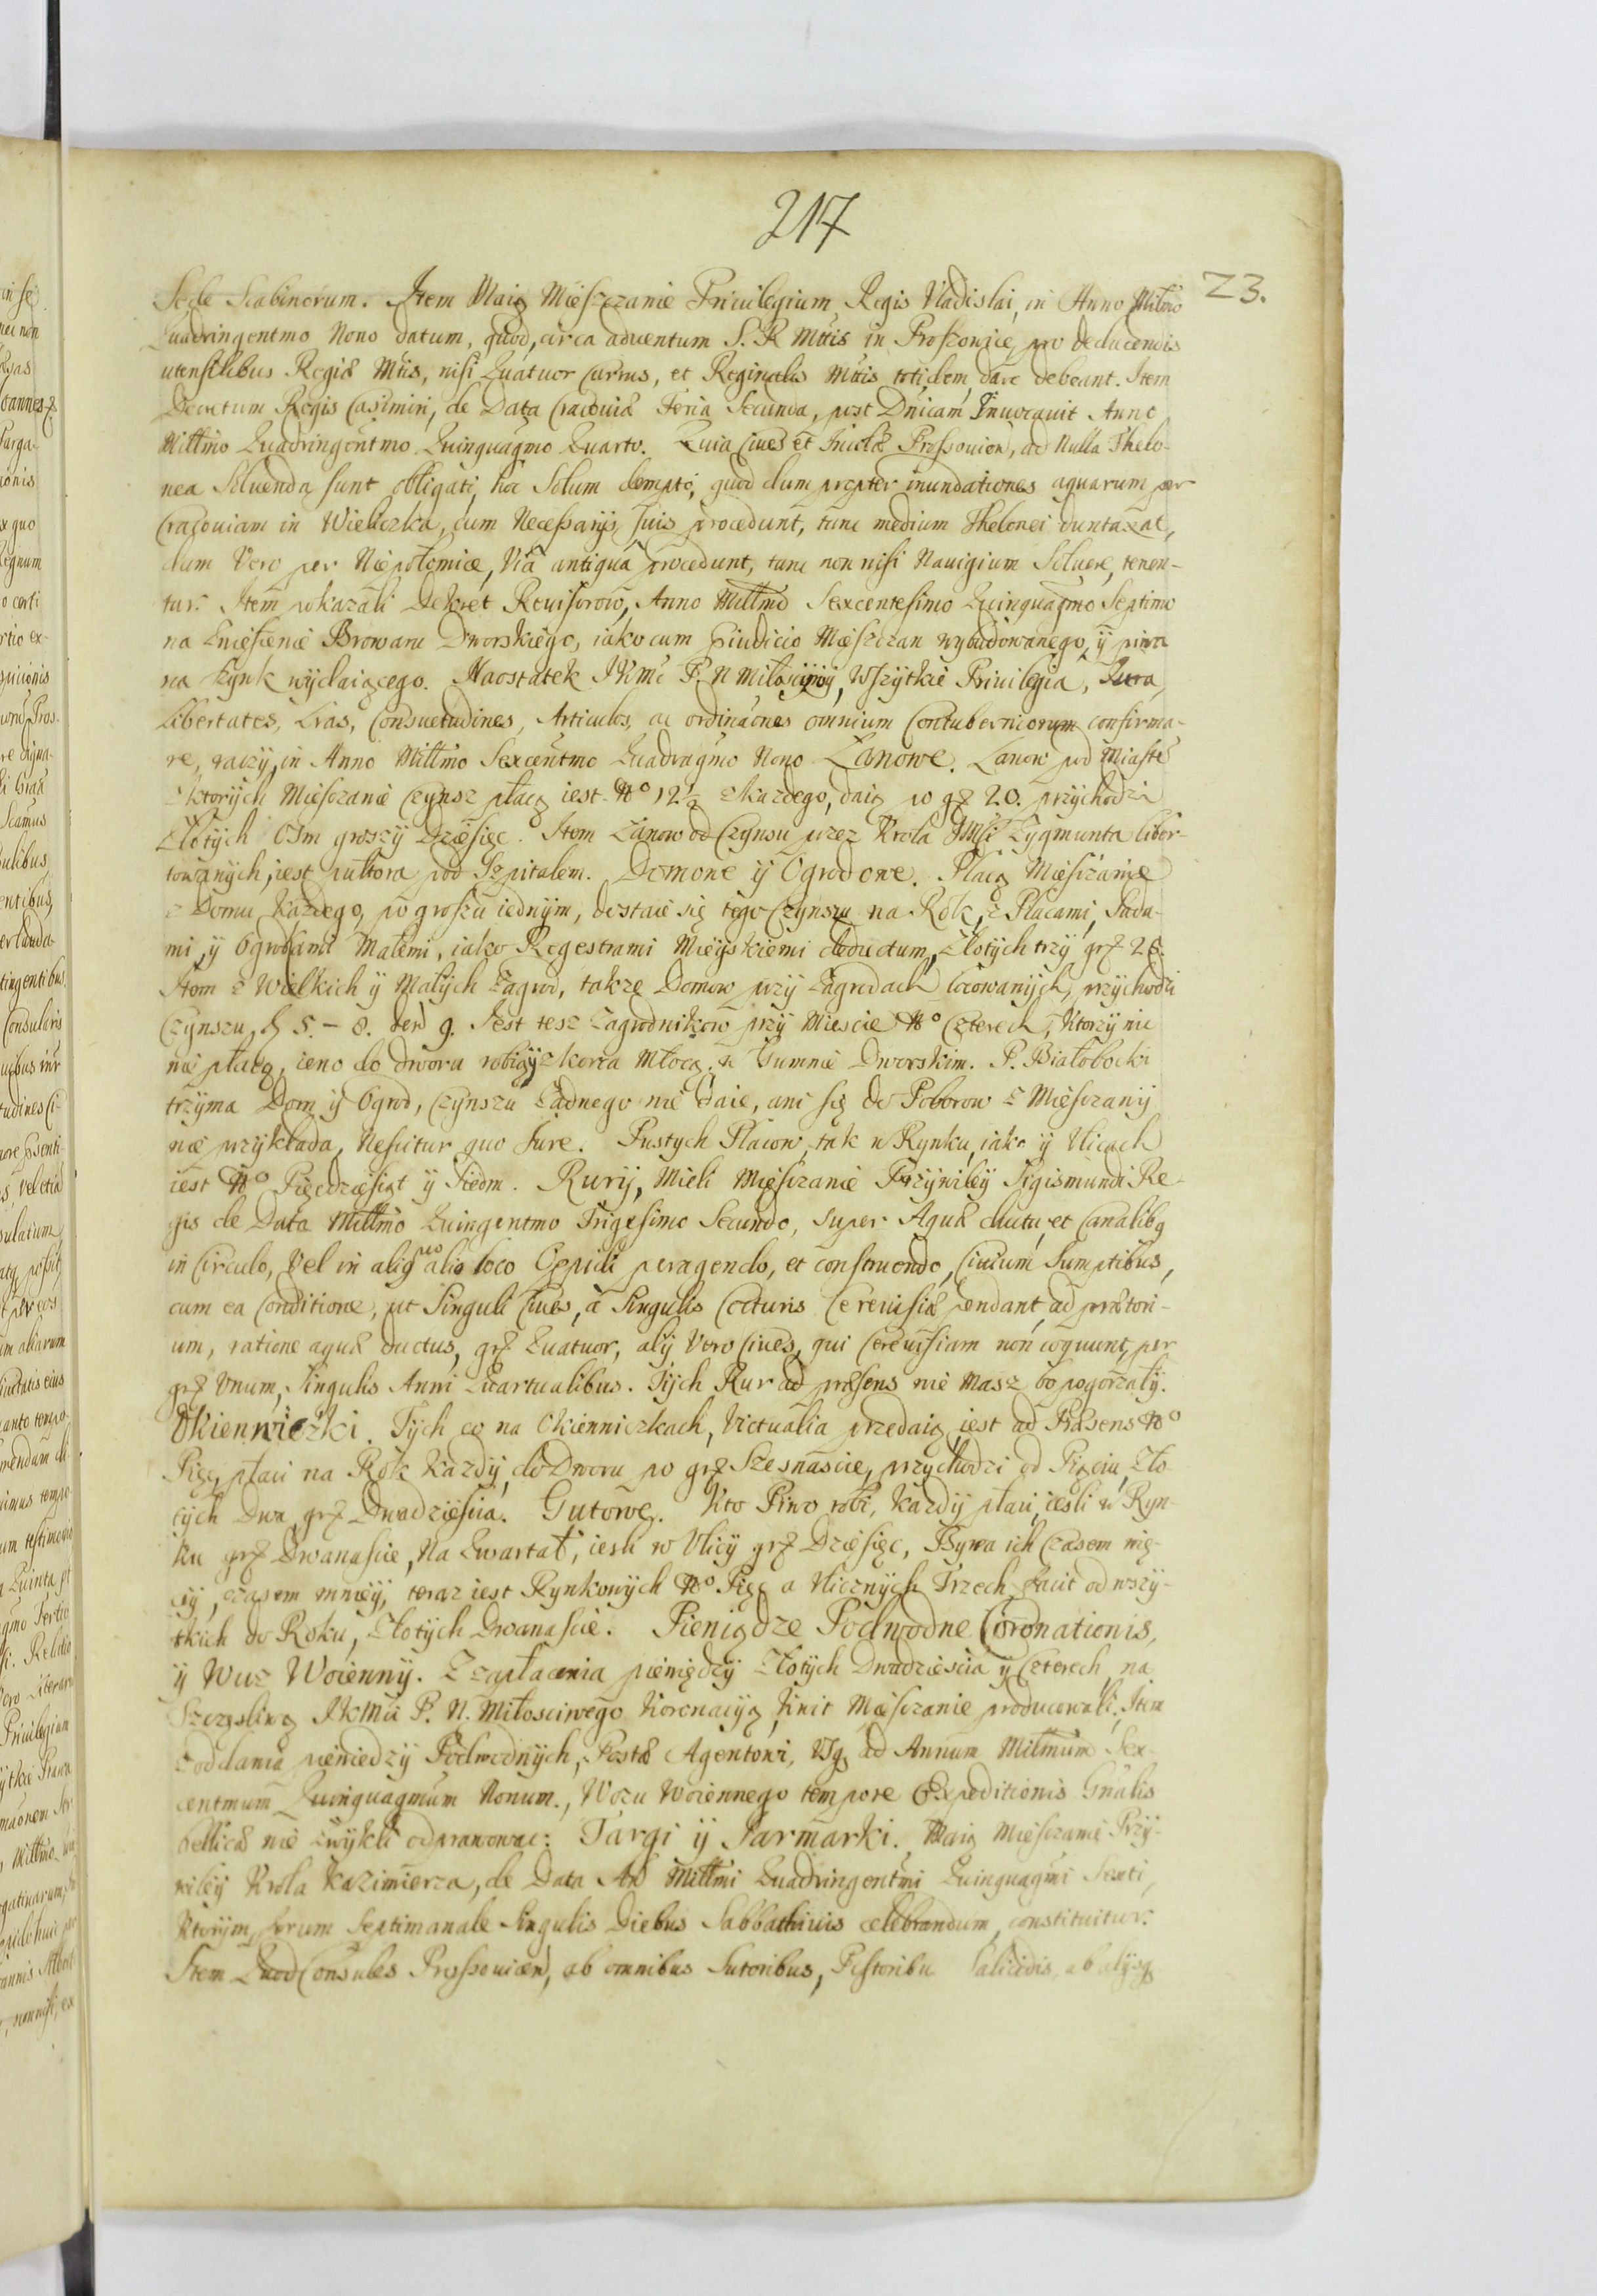 217
23.
Sede Scabinorum. Item Maią Mieszczanie Priuilegium Regis Vladislai, in Anno Millmo
Quadringentmo Nono datum, quod, circa aduentum S. R Mttis in Proszowice, pro deducendis
utensilibus Regiæ Mttis, nisi Quatuor Currus, et Reginalis Mttis totidem, dare debeant. Item
Decretum Regis Casimiri, de Data Cracouiæ Feria Secunda, post Dnicam Inuocauit Anno
Millmo Quadringentmo Quinquagmo Quarto. Quia Ciues et Incolæ Prossouien, ad Nulla Thelo-
nea Soluenda sunt obligati, hoc Solum dempto, quod dum propter inundationes aquarum per
Cracouiam in Wieliczka, cum Necessarijs suis procedunt, tunc medium Thelonei duntaxat,
dum Vero per Niepołomice, Via antiqua procedunt, tunc non nisi Nauigium Soluere, tenen-
tur. Item pokazali Dekret Reuisorow, Anno Millmo Sexcentesimo Quinquagmo Septimo
na Zniesienie Browaru Dworskiego, iako cum Piudicio Mieszczan wybudowanego, ÿ piwa
na szynk wydaiącego. Naostatek JKMć P. N Miłościwÿ, Wszytkie Priuilegia, Iura,
Libertates, Lras, Consuetudines, Articulos, ac ordinaones omnium Contuberniorum confirma-
re, raczÿ, in Anno Millmo Sexcentmo Quadragmo Nono Łanowe. Łanow pod Miastē
z ktorÿch Miesczanie Czynsz płacą iest No 12½ z kazdego, daią po gr 20. przÿchodzi
Złotÿch Osm groszÿ Dziesięc. Item Łanow od Czynsu przez Krola JMci Zygmunta liber-
towanÿch, iest pułtora pod Szpitalem. Domowe ÿ Ogrodowe. Płacą Miesczanie
z Domu Każdego, po groszu iednÿm, dostaie się tego Czynszu na Rok, z Placami, Sada-
mi, ÿ Ogrodami Małemi, iako Regestrami Mieyskiemi deductum, Złotÿch trzÿ gr 28.
Item z Wielkich ÿ Małÿch Zagrod, takze Domow przÿ Zagrodach locowanÿch, przÿchodzi
Czynszu, fl 5. – 8. den 9. Iest tesz Zagrodnikow przÿ Miescie No Czterech, Ktorzÿ nic
nie płacą, ieno do dwora robią, z korca Młocą w Gumnie Dworskim. P. Białobocki
trzÿma Dom ÿ Ogrod, Czynszu Zadnego nie daie, ani się do Poborow z Miesczanÿ
nie przÿkłada, Nescitur quo Iure. Pustych Placow, tak w Rynku, iako ÿ Vlicach
iest No Pięcdziesiąt ÿ Siedm. Rurÿ, Mieli Miesczanie Przÿwileÿ Sigismundi Re-
gis de Data Millmo Quingentmo Trigesimo Secundo, super Aquæ ductu, et Canalibq
in Circulo, Vel in aliquo alio loco Oppidi peragendo, et construendo, Ciuium Sumptibus,
cum ea Conditione, ut Singuli Ciues, a Singulis Cocturis Cereuisiæ pendant, ad prætori-
um, ratione aquæ ductus, gr Quatuor, alÿ Vero Ciues, qui Cereuisiam non coquunt, per
gr Vnum, Singulis Anni Quartualibus. Tÿch Rur ad præsens nie masz bo pogorzałÿ.
Okienniczki. Tÿch co na Okienniczkach, Victualia przedaią, iest ad Præsens No
Pięc, płaci na Rok Kazdÿ, do Dworu po gr Szesnascie, przÿchodzi od Pięciu, Zło-
tÿch Dwa, gr Dwadziescia. Gutowe. Kto Piwo robi, Kazdÿ płaci, iesli w Ryn-
ku gr Dwanascie, Na Quartał, iesli w Vlicÿ gr Dziesięc, Bywa ich Czasem wię-
cÿ, czasem mnieÿ, teraz iest Rynkowÿch No Pięc a Vlicznÿch Trzech facit od wszÿ-
tkich do Roku, Złotÿch Dwanascie. Pieniądze Podwodne Coronationis,
ÿ Wuz Woiennÿ. Z zapłacenia pieniędzÿ Złotÿch Dwadziescia ÿ Czterech, na
Szczęsliwą JKMci P. N. Miłosciwego Koronacÿą, Kwit Miesczanie producowali. Item
z oddania pieniedzÿ Podwodnÿch, Postæ Agentowi, Vsq ad Annum Milmum Sex-
centmum Quinquagmum Nonum, Wozu Woiennego tempore Expeditionis Gnalis
bellicæ nie zwÿkli odprawowac. Targi ÿ Iarmarki. Maią Miesczanie Przÿ-
wileÿ Krola Kazimierza, de Data Ao Millmi Quadringentmi Quinquagmi Sexti,
Ktorÿm, forum Septimanale Singulis Diebus Sabbathiuis celebrandum, constituitur.
Item Quod Consules Prossouien, ab omnibus Sutoribus, Pistoribu Salicidis, ab alÿsq